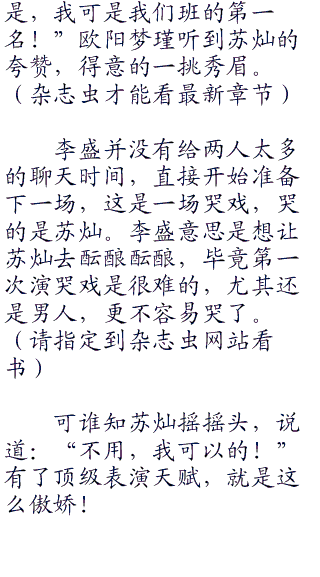 是，我可是我们班的第一
名！”欧阳梦瑾听到苏灿的
夸赞，得意的一挑秀眉。
（杂志虫才能看最新章节）
李盛并没有给两人太多
的聊天时间，直接开始准备
下一场，这是一场哭戏，哭
的是苏灿。李盛意思是想让
苏灿去酝酿酝酿，毕竟第一
次演哭戏是很难的，尤其还
是男人，更不容易哭了。
（请指定到杂志虫网站看
书）
可谁知苏灿摇摇头，说
道：“不用，我可以的！”
有了顶级表演天赋，就是这
么傲娇！